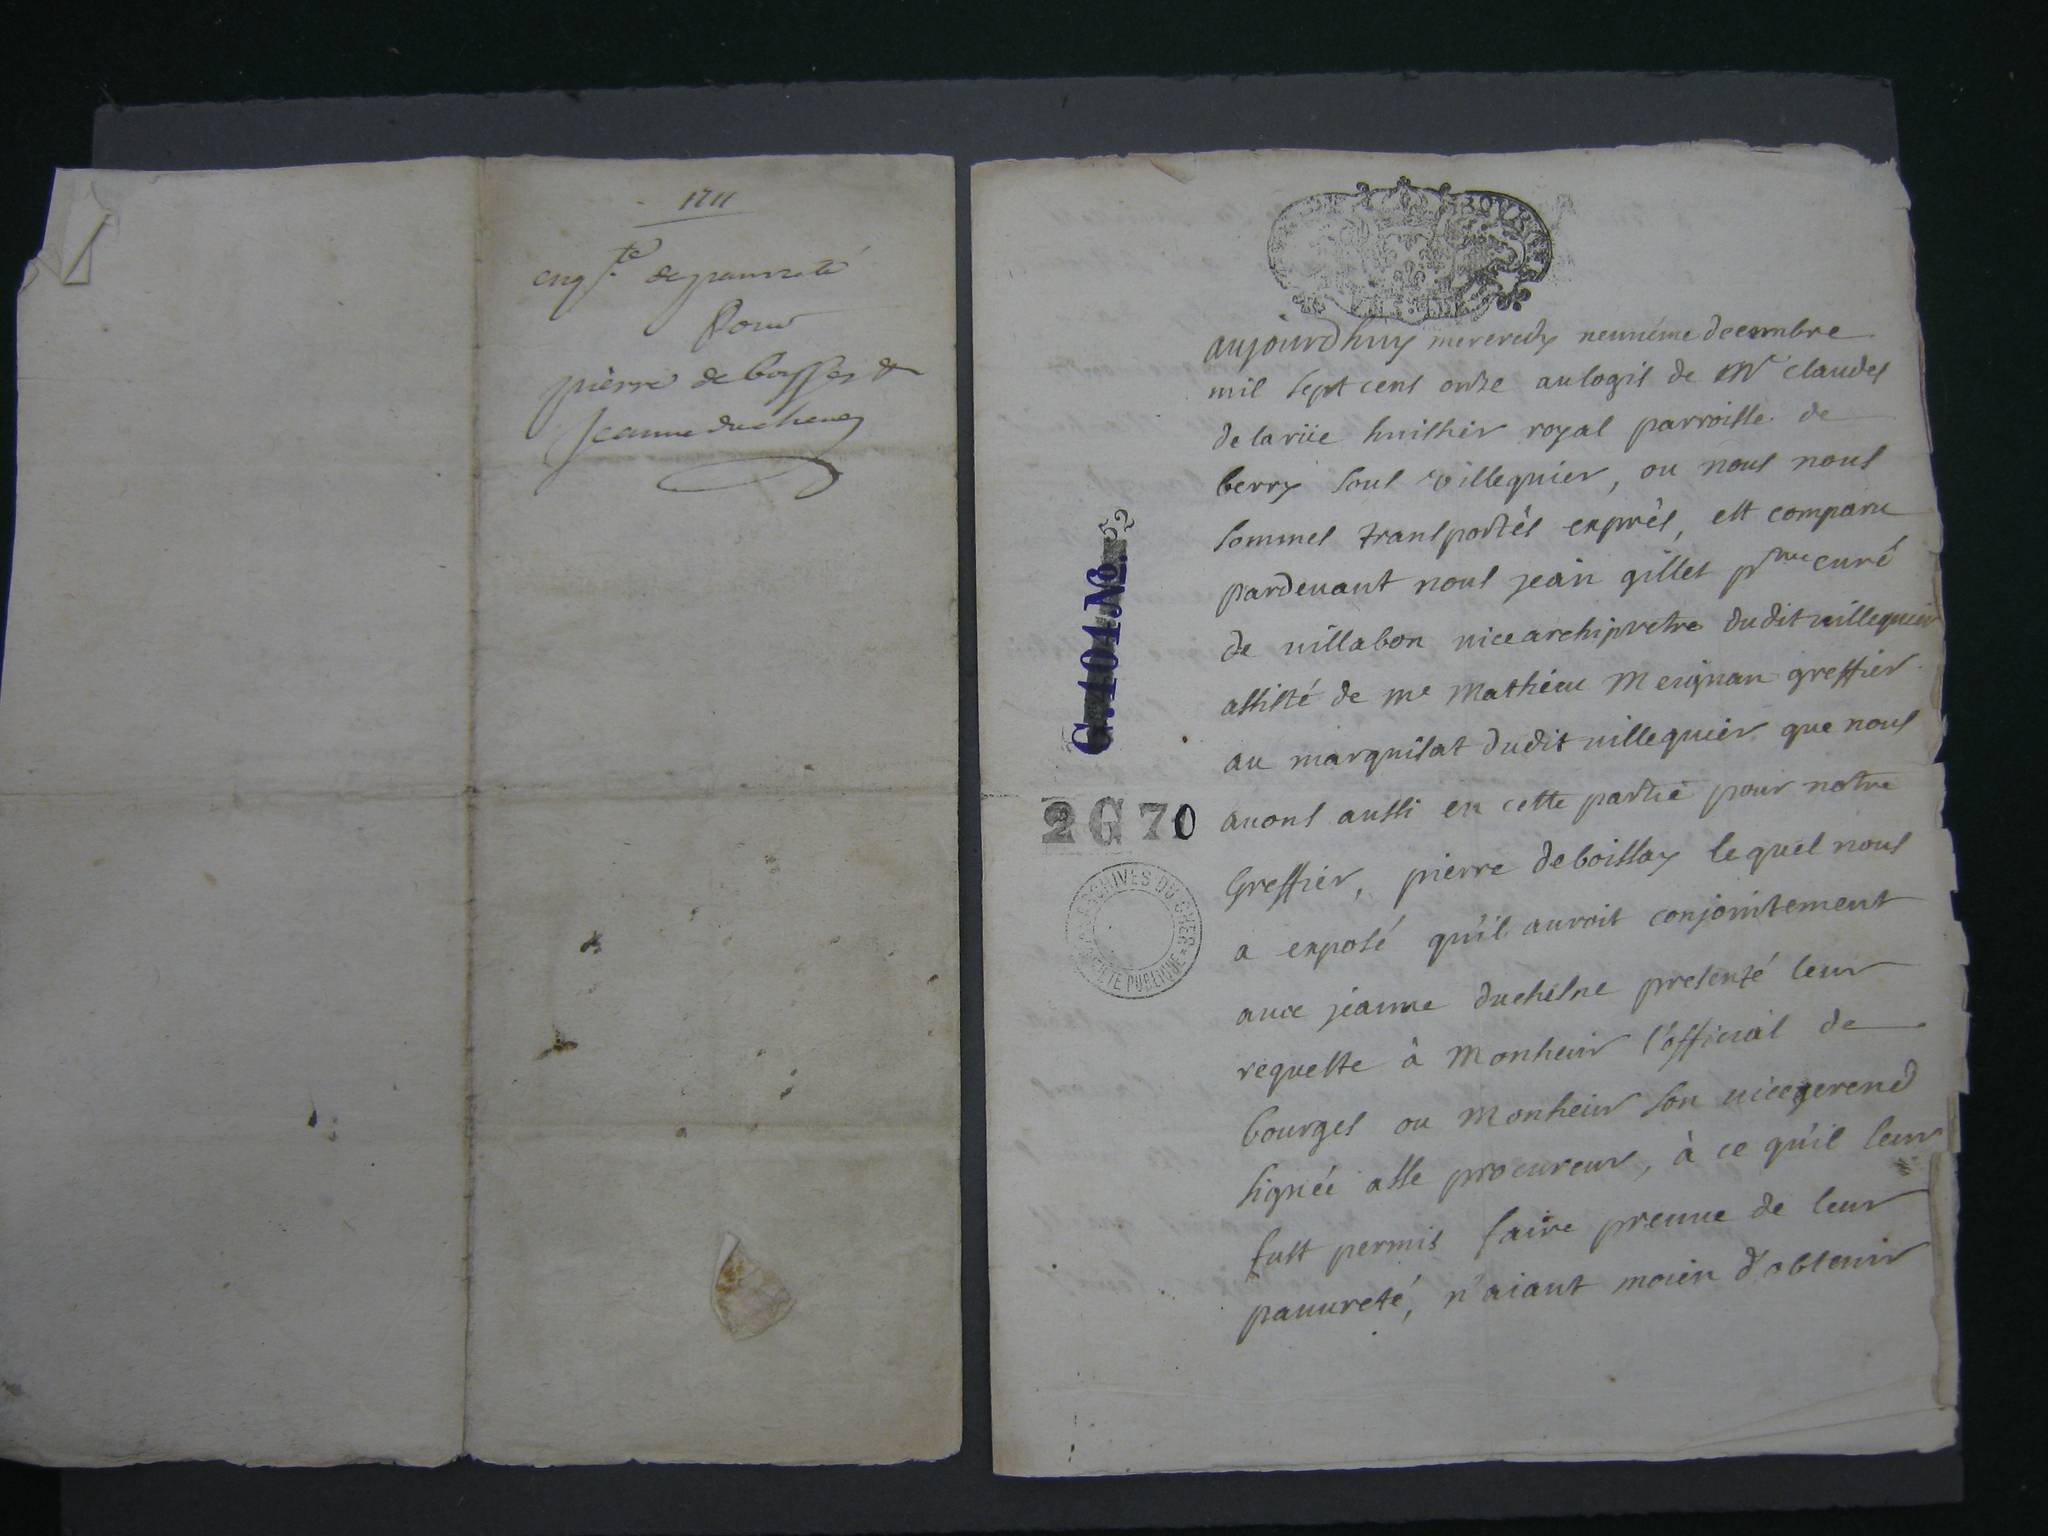 1711
enqte de pauvreté
Pour
pierre de boissay &
Jeanne duchene
aujourdhuy mercredy neuuiéme decembre
mil sept cens onze au logis de Mr claudes
delarüe huissier royal parroisse de
berry sous villequier, ou nous nous
sommes transportés exprés, est comparu
pardeuant nous jean gillet curé
de uillabon uicearchipretre dudit uillequier
assisté de me Mathieu Meignan greffier
au marquisat dudit uillequier que nous
auons aussi en cette partie pour notre
Greffier, pierre deboissay lequel nous
a exposé qu'il auroit conjointement
auec jeanne duchesne presenté leur
requeste à Monsieur l'official de
bourges ou Monsieur son uicegerend
signée asse procureur, à ce qu'il leur
fust permis faire preuue de leur
pauureté, n'aiant moien d'obtenir
C. 101 No. 52
2G 70
ARCHIVES DU CHER
PUBLIQUE